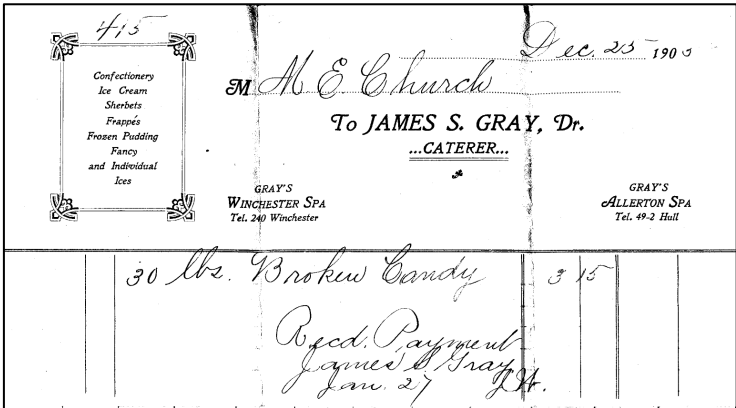 415
Dec. 25 1905
Confectionery
Ice Cream
Sherbets
Frappés
Frozen Pudding
Fancy
and Individual
Ices
M M E. Church
To JAMES S. GRAY, Dr.
...CATERER...
GRAY'S
WINCHESTER SPA
Tel. 240 Winchester
GRAY'S
ALLERTON SPA
Tel. 49-2 Hull
30 lbs. Broken Candy 3 15
Recd. Payment
James S Gray
Jan. 27